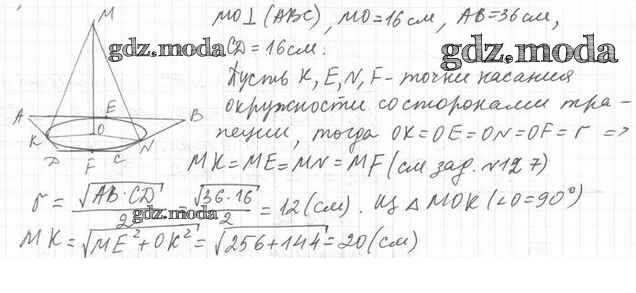 M
MO⊥(ABC), MO=16см, AB=36см,
gdz.moda CD=16см. gdz.moda
Пусть K, E, N, F - точки касания
окружности со сторонами тра-
пеции, тогда OK=OE=ON=OF=r =>
MK=ME=MN=MF (см зад. №127)
A E B
O
K N
D F C
r = √AB·CD / 2 = √36·16 / 2 = 12 (см). Из △ MOK (∠O=90°)
gdz.moda
MK=√ME²+OK² = √256+144 = 20 (см)